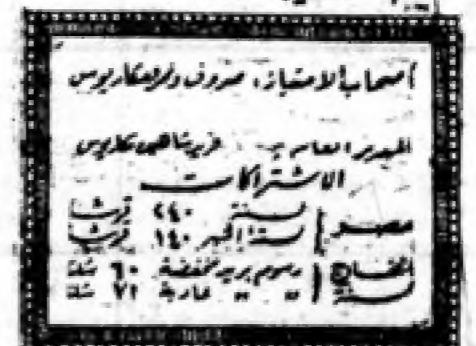 أصحاب الامتياز: صروف ونمر ومكاريوس
المدير العام: شاهين مكاريوس
الاشتراكات
مصر { لسنة ٢٤٠ قرشا
لستة اشهر ١٤٠ قرشا
الخارج { رسوم بريد مخفضة ٦٠ شلنا
لسنة { " " عادية ٧١ شلنا